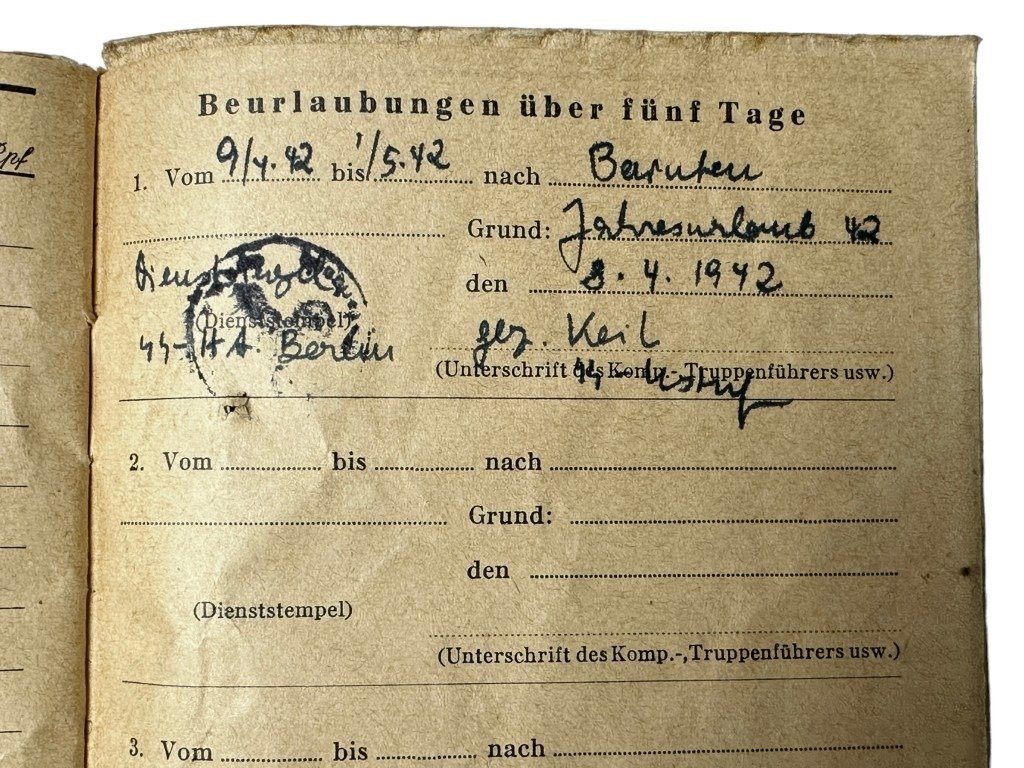 Beurlaubungen über fünf Tage
1. Vom 9/4.42 bis 1/5.42 nach
Grund: Jahresurlaub 42
den 8.4.1942
(Dienststempel)
SS-HA. Berlin
gez. Keil
(Unterschrift des Komp.-, Truppenführers usw.)
2. Vom bis nach
Grund:
den
(Dienststempel)
(Unterschrift des Komp.-, Truppenführers usw.)
3. Vom bis nach